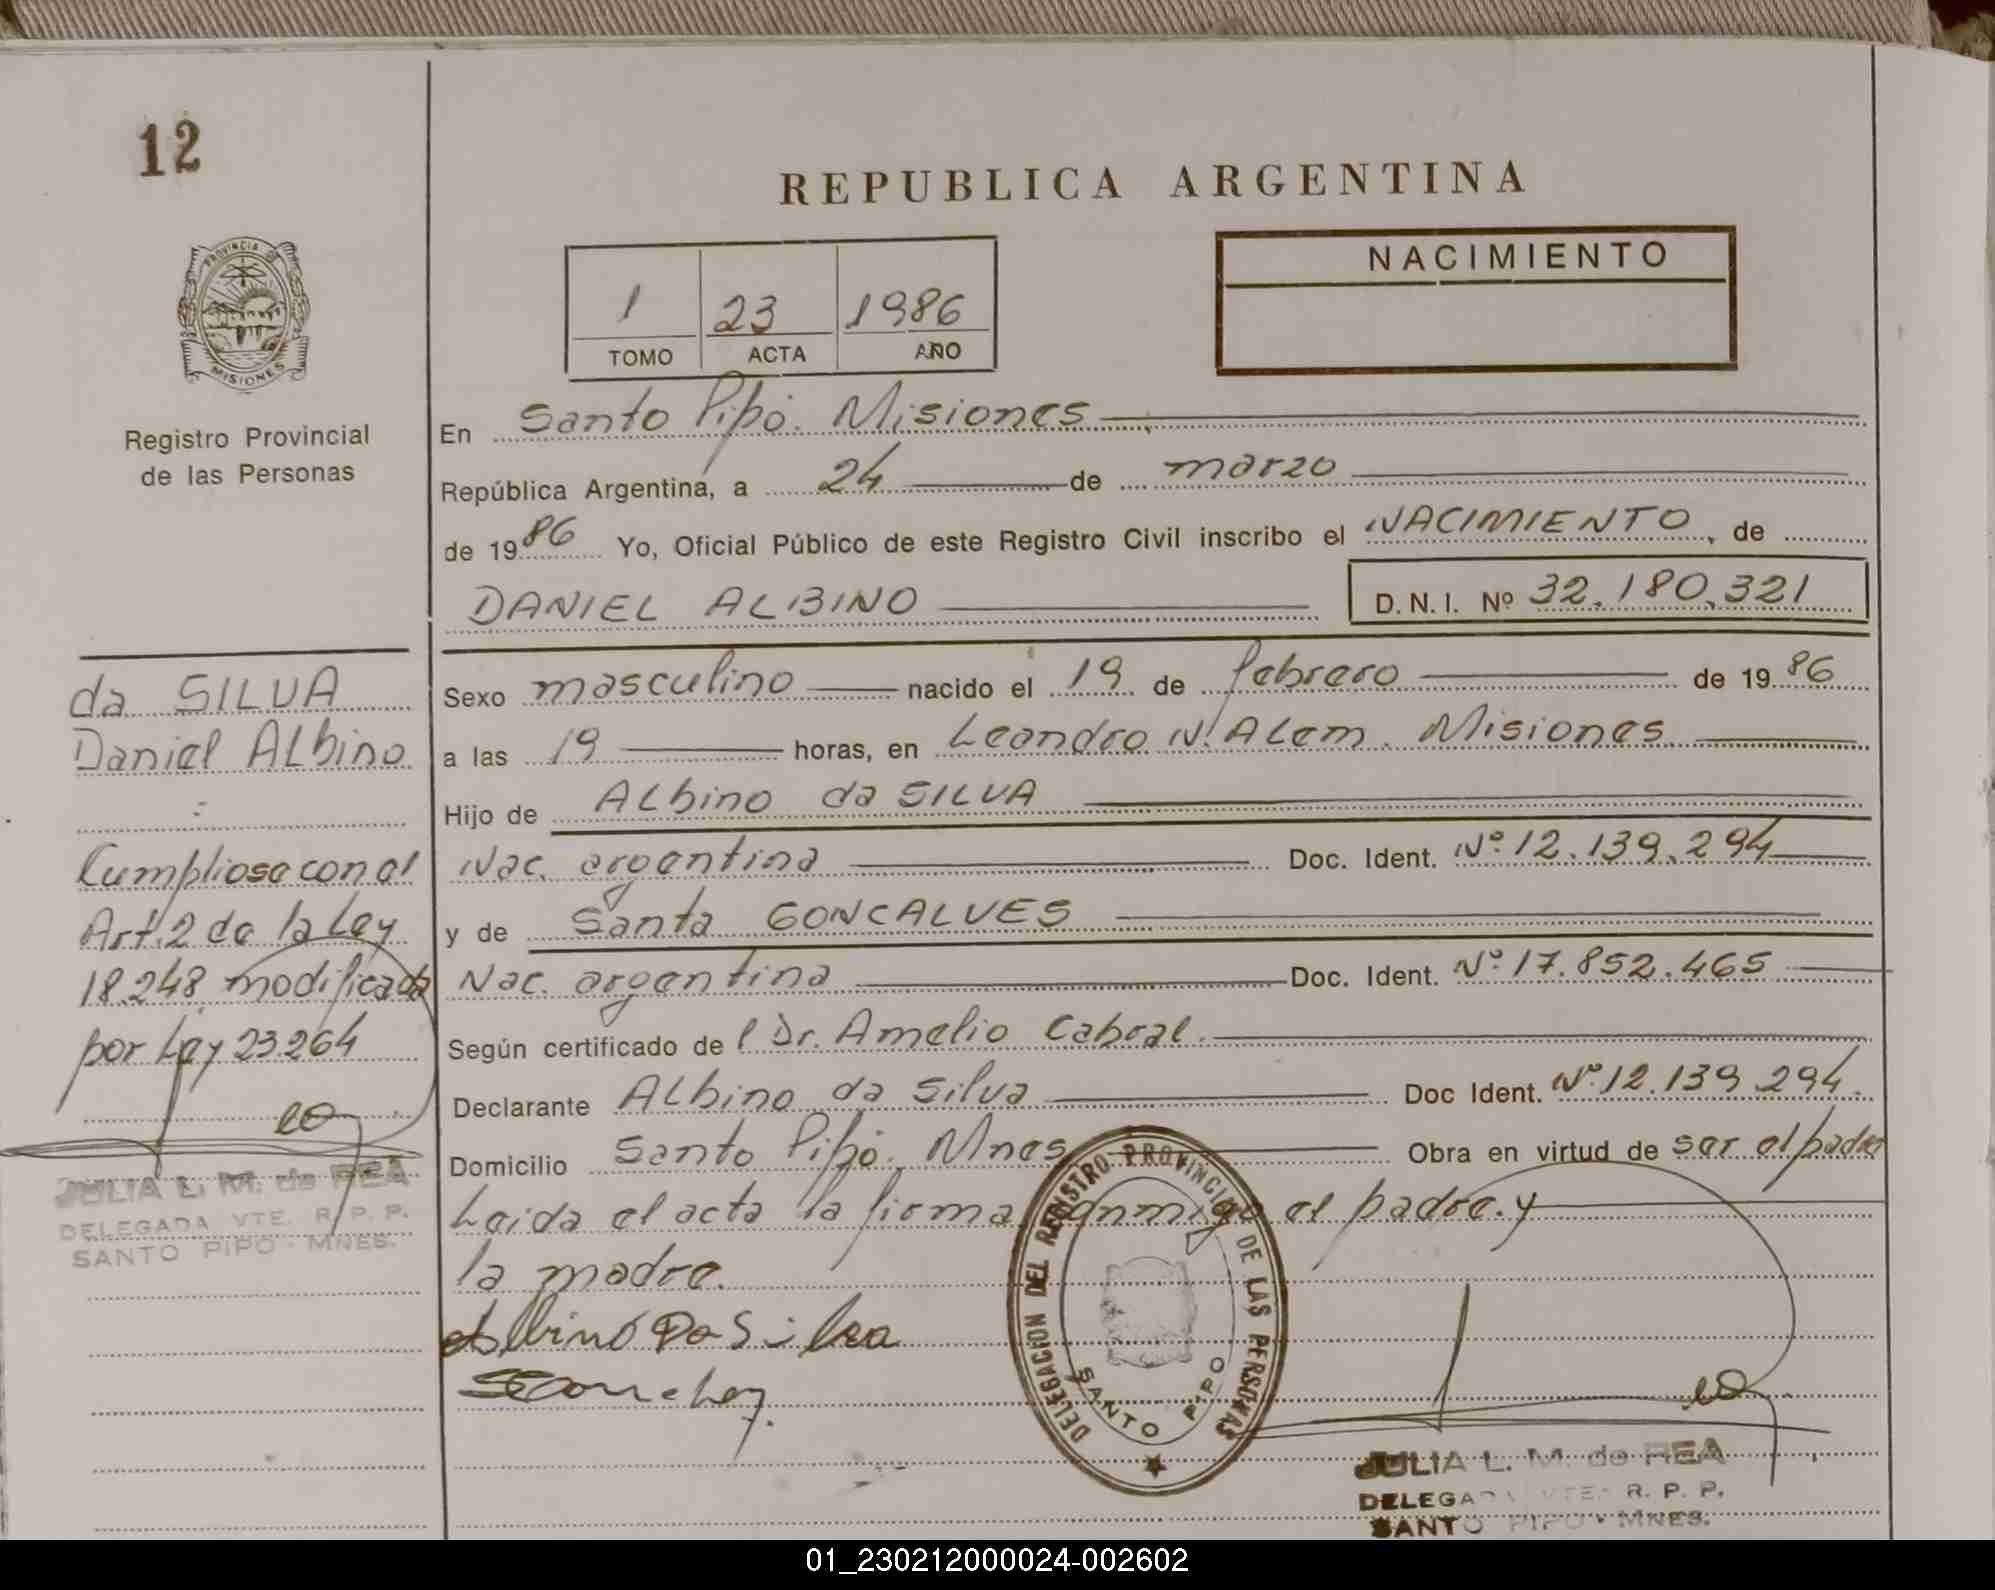 12
REPUBLICA ARGENTINA
PROVINCIA DE
MISIONES
Registro Provincial
de las Personas
1 23 1986
TOMO ACTA AÑO
NACIMIENTO
En Santo Pipó. Misiones
República Argentina, a 24 de marzo
de 1986 Yo, Oficial Público de este Registro Civil inscribo el NACIMIENTO, de
DANIEL ALBINO D.N.I. Nº 32.180.321
da SILVA
Daniel Albino
Cumpliose con el
Art. 2 de la Ley
18.248 modificada
por Ley 23264
JULIA L. M. de REA
DELEGADA VTE. R. P. P.
SANTO PIPO - MNES.
Sexo masculino nacido el 19 de febrero de 1986
a las 19 horas, en Leandro N. Alem. Misiones
Hijo de Albino da SILVA
Nac. argentina Doc. Ident. Nº 12.139.294
y de Santa GONCALVES
Nac. argentina Doc. Ident. Nº 17.852.465
Según certificado del Dr. Amelio Cabral.
Declarante Albino da Silva Doc Ident. Nº 12.139.294.
Domicilio Santo Pipó. Mnes Obra en virtud de ser el padre
Leida el acta la firma conmigo el padre. y
la madre.
Albino Da Silva
DELEGACION DEL REGISTRO PROVINCIAL DE LAS PERSONAS
SANTO PIPO
JULIA L. M. de REA
DELEGADA VTE. R. P. P.
SANTO PIPO - MNES.
01_230212000024-002602